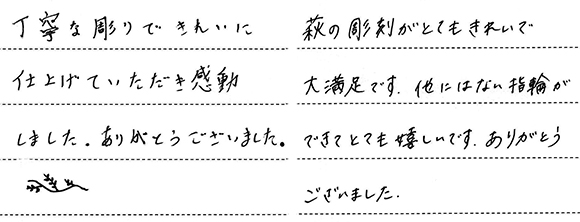 丁寧な彫りできれいに
仕上げていただき感動
しました。ありがとうございました。
萩の彫刻がとてもきれいで
大満足です.他にはない指輪が
できてとても嬉しいです.ありがとう
ございました.